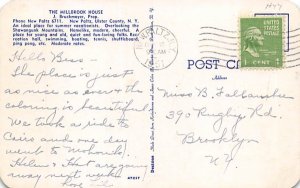 THE MILLBROOK HOUSE
L. Bruckmayer, Prop.
Phone New Paltz 6711. New Paltz, Ulster County, N. Y.
An ideal place for summer vacationists. Overlooking the
Shawangunk Mountains. Homelike, modern, cheerful. A
place for young and old, quiet and fun-loving folk. Recreation hall, swimming, boating, tennis, shuffleboard,
ping pong. Moderate rates.
Hello Bess.
The place is just
as nice as ever & the
coloring is beautiful
We took a ride to
Cairo and one day
went to Mohonk.
Helen & are going
away next week
love
47257
NEW PALTZ
POST CARD
Address
1 CENT
Miss B.
390 Rugby Rd.
Brooklyn
N.Y.